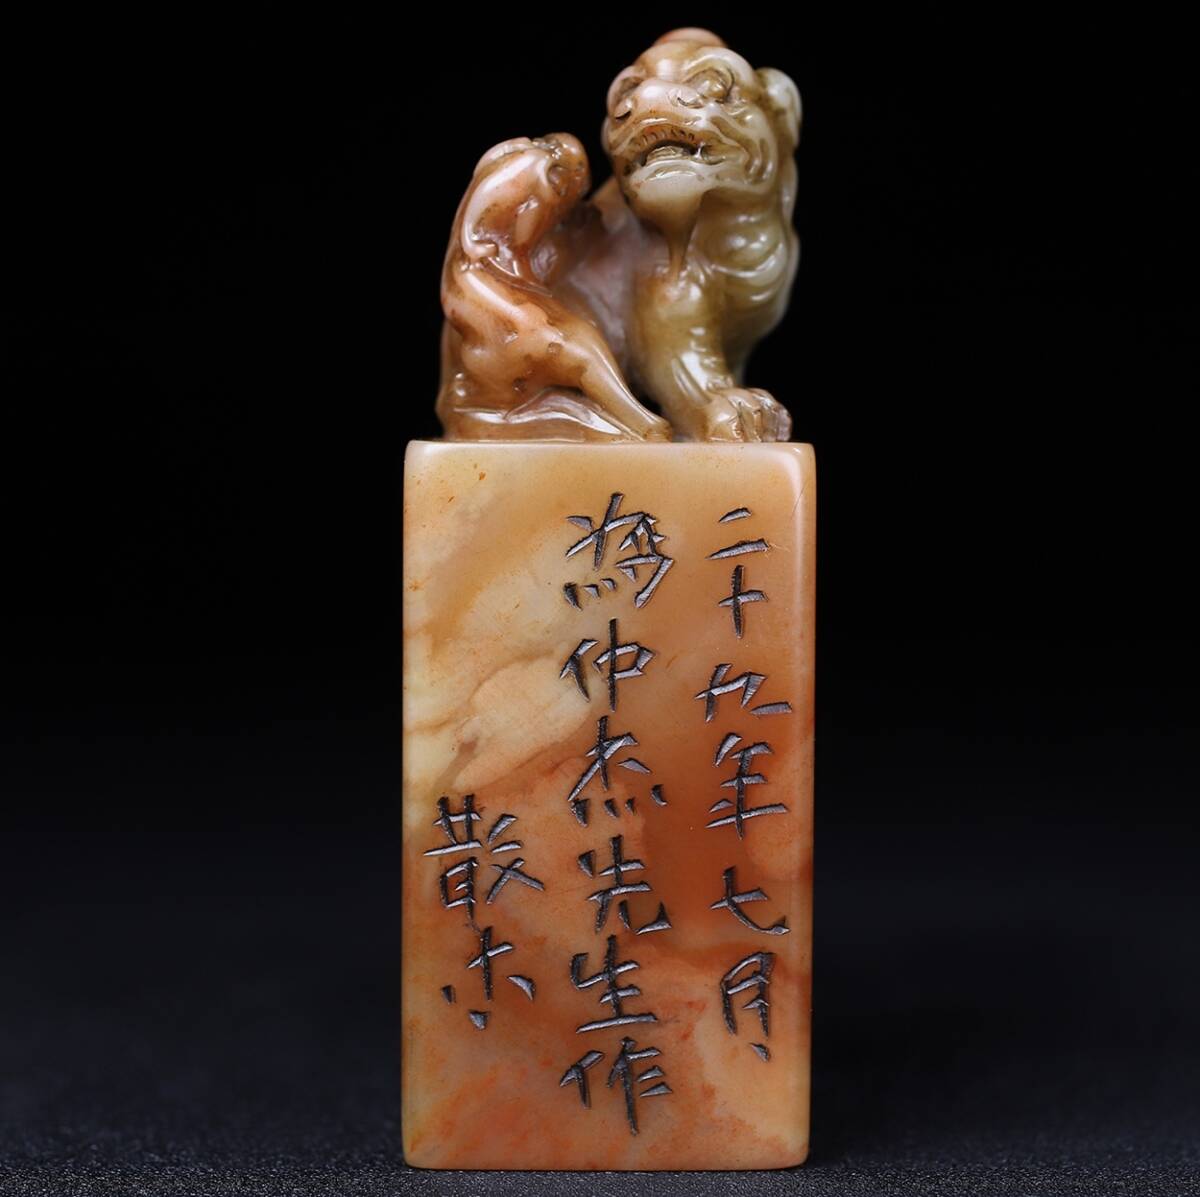 二十九年七月
為仲杰先生作
散木